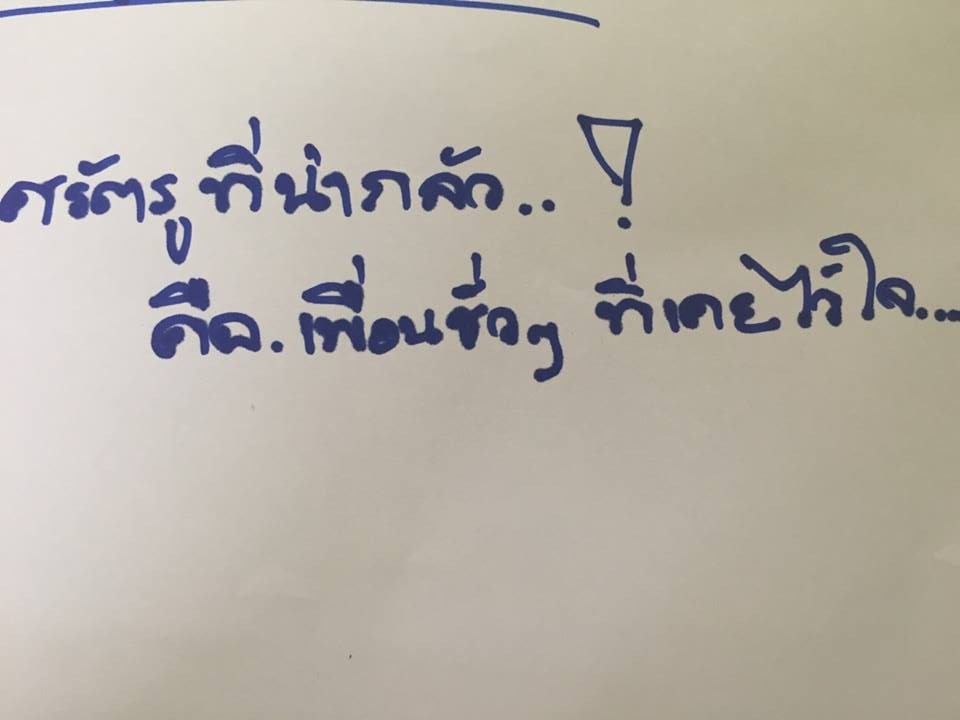 ศรัตรูที่น่ากลัว..!
คือ.เพื่อนชั่วๆ ที่เคยไว้ใจ...